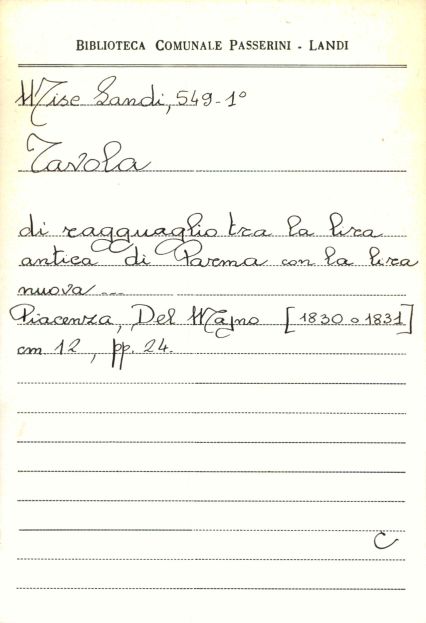 BIBLIOTECA COMUNALE PASSERINI - LANDI
Misc Landi, 549-1°
Tavola
di ragguaglio tra la lira
antica di Parma con la lira
nuova ...
Piacenza, Del Majno [1830 o 1831]
cm 12, pp. 24.
C